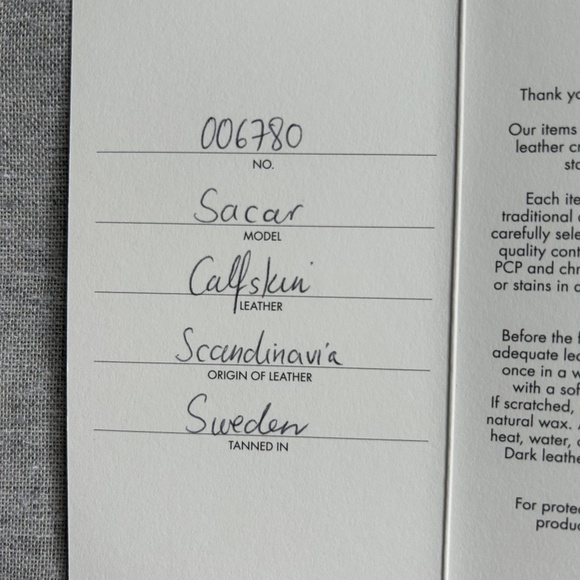 006780
NO.
Sacar
MODEL
Calfskin
LEATHER
Scandinavia
ORIGIN OF LEATHER
Sweden
TANNED IN
Thank
Our items
leather
Each
traditional
carefully
quality
PCP and
or stains in
Before the
adequate
once in a
with a
If scratched,
natural wax.
heat, water,
Dark
For